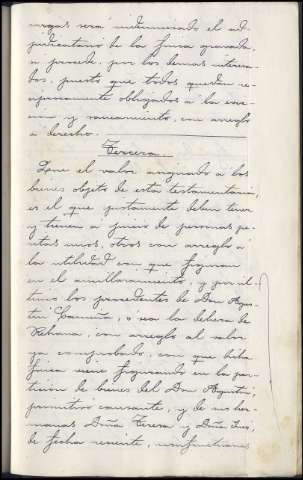 cargas será indemnizado el ad-
judicatario de la finca gravada,
si procede, por los demas interesa-
dos, puesto que todos quedan re-
ciprocamente obligados a la evic-
ción y saneamiento, con arreglo
a derecho.
Tercera.
Que el valor asignado a los
bienes objeto de esta testamentaria,
es el que justamente deben tener
y tienen a juicio de personas pe-
ritas unos, otros con arreglo a
la utilidad con que figuran
en el amillaramiento, y por úl-
timo los procedentes de Don Agus-
tin o sea la dehesa de
con arreglo al valor
ya comprobado, con que dicha
finca viene figurando en la par-
tición de bienes del Don Agustin,
primitivo causante, y de sus her-
manas Doña Teresa y Doña
de fecha reciente,